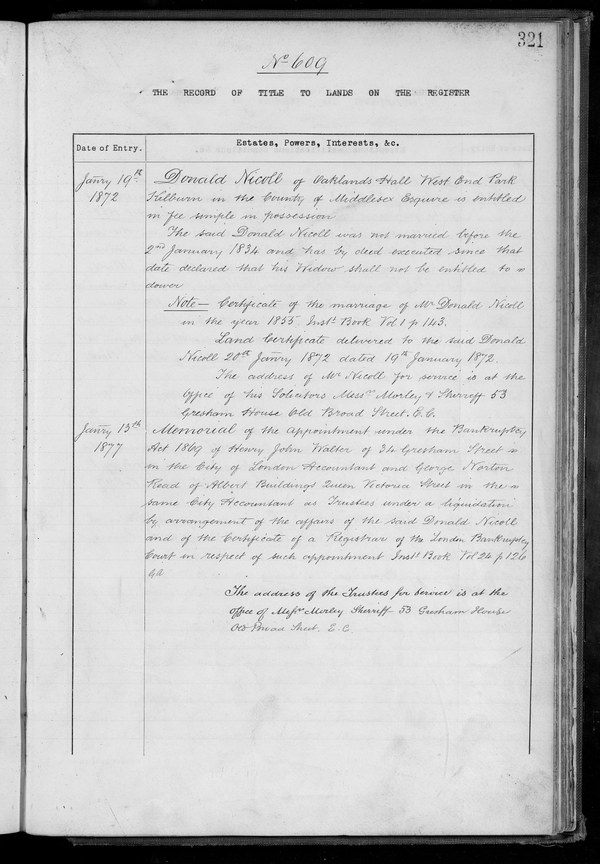 321
No 609
THE RECORD OF TITLE TO LANDS ON THE REGISTER
Date of Entry.
Estates, Powers, Interests, &c.
Janry 19th
1872
Donald Nicoll of Oaklands Hall West End Park
Kilburn in the County of Middlesex Esquire is entitled
in fee simple in possession
The said Donald Nicoll was not married before the
2nd January 1834 and has by deed executed since that
date declared that his Widow shall not be entitled to
dower
Note— Certificate of the marriage of Mr Donald Nicoll
in the year 1855. Inst. Book Vol 1 p 143.
Land Certificate delivered to the said Donald
Nicoll 20th Janry 1872 dated 19th January 1872.
The address of Mr Nicoll for service is at the
Office of his Solicitors Messrs Morley & Sherreff 53
Gresham House Old Broad Street. E.C.
Janry 13th
1877
Memorial of the Appointment under the Bankruptcy
Act 1869 of Henry John Walter of 34 Gresham Street
in the City of London Accountant and George Norton
Read of Albert Buildings Queen Victoria Street in the
same City Accountant as Trustees under a liquidation
by arrangement of the affairs of the said Donald Nicoll
and of the Certificate of a Registrar of the London Bankruptcy
Court in respect of such appointment Inst. Book Vol 24 p 126
The address of the Trustees for Service is at the
office of Messrs Morley Sherriff 53 Gresham House
Old Broad Street. E.C.